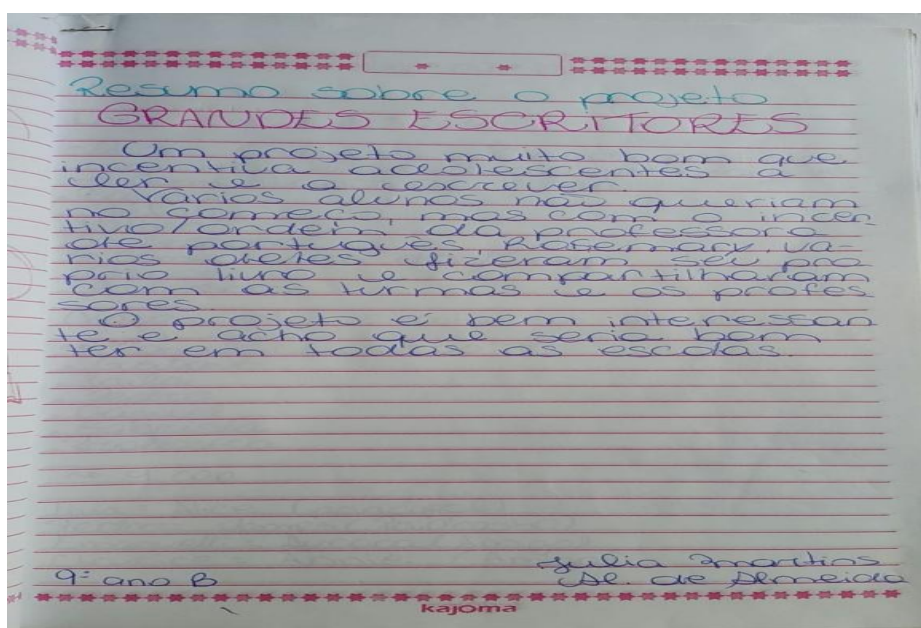 Resumo sobre o projeto
GRANDES ESCRITORES
Um projeto muito bom que
incentiva adolescentes a
ler e a escrever.
Varios alunos não queriam
no começo, mas com o incen
tivio/ordem da professora
de português, Rosemary, va-
rios deles fizeram seu pró
prio livro e compartilharam
com as turmas e os profes
sores.
O projeto é bem interessan
te e acho que seria bom
ter em todas as escolas.
Julia martins
9º ano B
de Almeida
kajoma